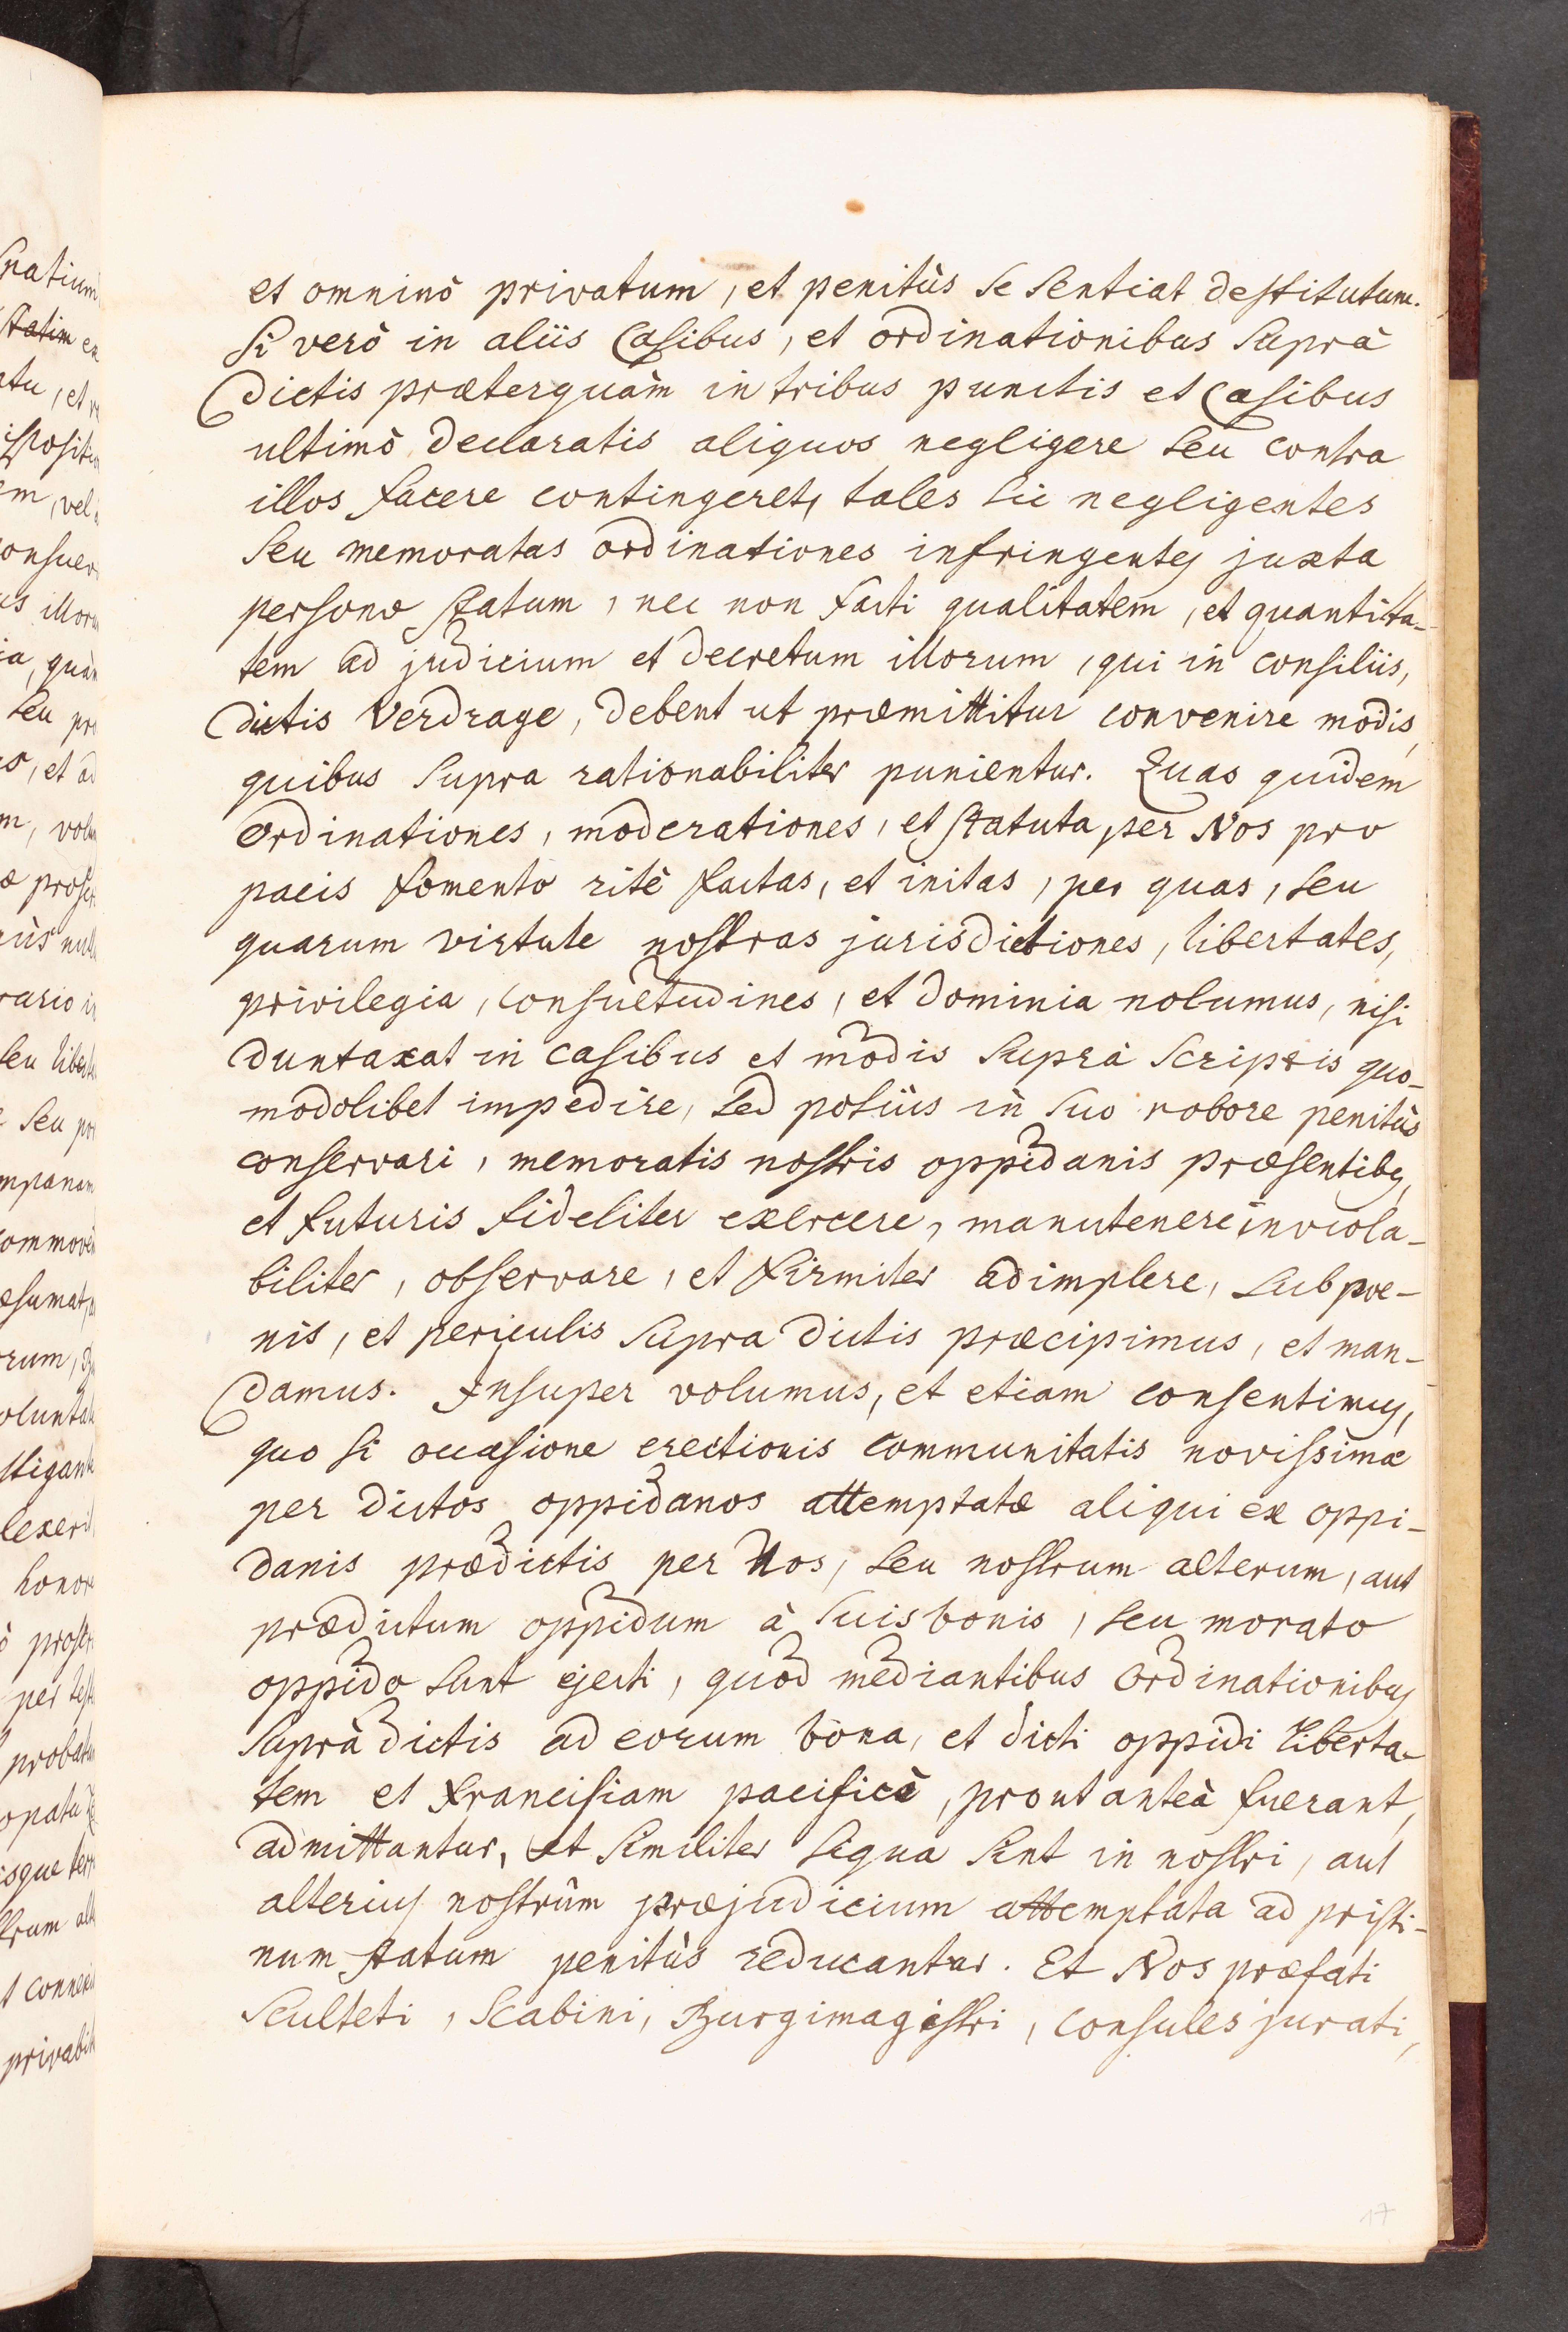 et omninò privatum, et penitùs se sentiat destitutum.
Si verò in aliis Casibus, et ordinationibus Suprà
dictis præterquàm in tribus punctis et Casibus
ultimò declaratis aliquos negligere seu contra
illos facere contingeret, tales sic negligentes
Seu memoratas ordinationes infringentes juxta
personæ statum, nec non facti qualitatem, et quantita-
tem ad judicium et decretum illorum, qui in consiliis,
dictis Verdrage, debent ut præmittitur convenire modis,
quibus Supra rationabiliter punientur. Quas quidem
ordinationes, moderationes, et statuta per Nos pro
pacis fomento ritè factas, et initas, per quas, seu
quarum virtute nostras jurisdictiones, libertates,
privilegia, consuetudines, et dominia nolumus, nisi
duntaxat in casibus et modis Suprà Scriptis quo-
modolibet impedire, sed potiùs in suo robore penitùs
conservari, memoratis nostris oppidanis præsentibus,
et futuris fideliter exercere, manutenere inviola-
biliter, observare, et firmiter adimplere, sub poe-
nis, et periculis Supra dictis præcipimus, et man-
damus. Insuper volumus, et etiam consentimus,
quo si occasione erectionis communitatis novissimæ
per dictos oppidanos attemptatæ aliqui ex oppi-
danis prædictis per Nos, seu nostrum alterum, aut
prædictum oppidum à Suis bonis, seu morato
oppido sunt ejecti, quòd mediantibus ordinationibus
Suprà dictis ad eorum bona, et dicti oppidi liberta-
tem et francisiam pacificè, prout anteà fuerant,
admittantur, et Similiter siqua sint in nostri, aut
alterius nostrûm præjudicium attemptata ad pristi-
num statum penitùs reducantur. Et Nos præfati
Sculteti, Scabini, Burgimagistri, consules jurati,
17
Statim